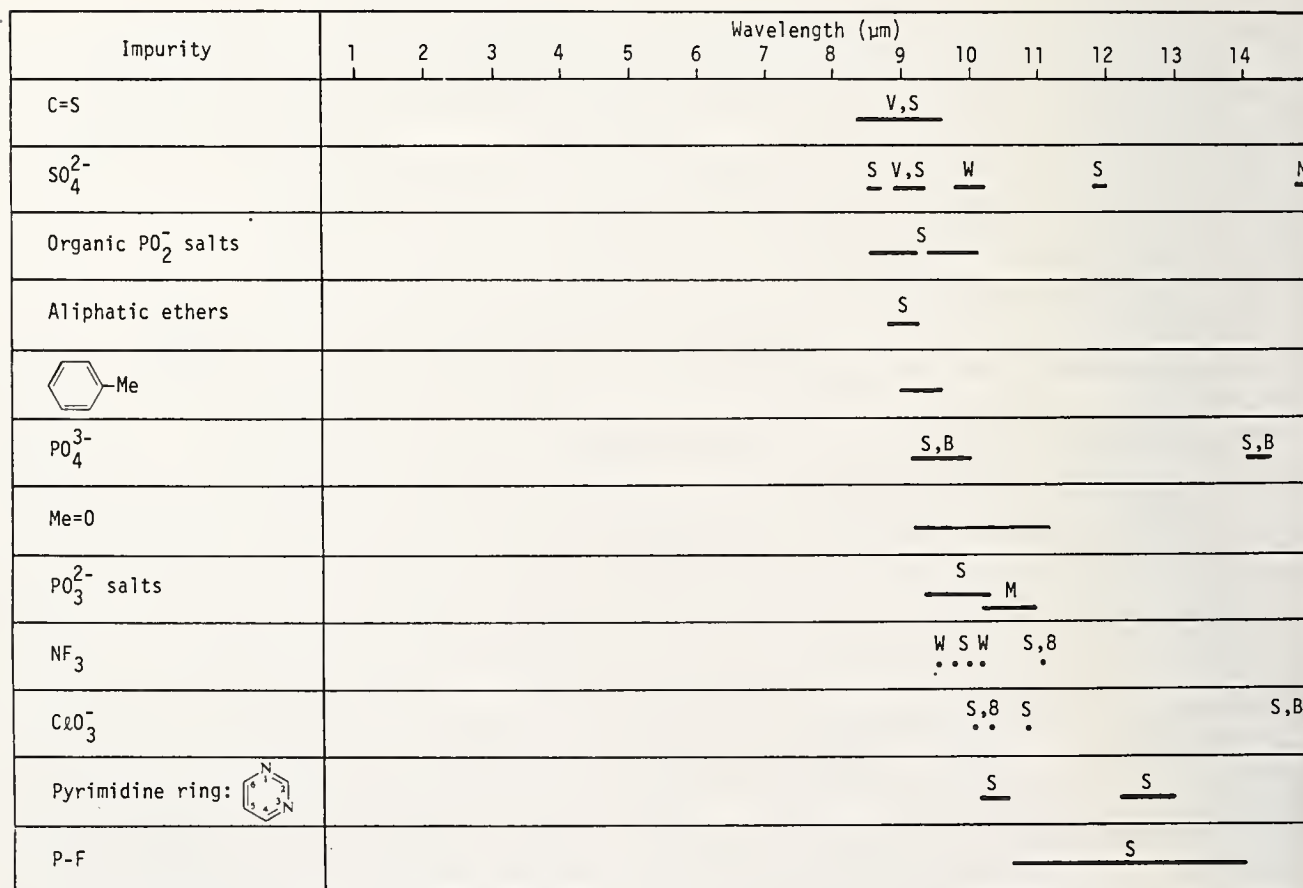 Wavelength (μm)
Impurity 1 2 3 4 5 6 7 8 9 10 11 12 13 14
C=S V,S
SO₄²⁻ S V,S W S
Organic PO₂⁻ salts S
Aliphatic ethers S
-Me
PO₄³⁻ S,B S,B
Me=O
PO₃²⁻ salts S M
NF₃ W S W S,8
CℓO₃⁻ S,8 S S,B
Pyrimidine ring: N 1 2 3 N 4 5 6 S S
P-F S